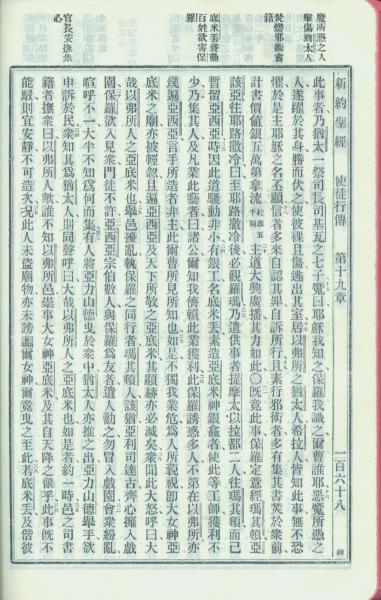 魔所憑之人
擊傷猶太人
焚燬邪術書
籍
底米丟聳動
百姓欲害保
羅
官長安撫衆
心
新約聖經 使徒行傳 第十九章 一百六十八
此事者乃猶太一祭司長司基瓦之七子魔曰耶穌我知之保羅我識之爾曹誰耶惡魔所憑之
人遂躍於其身勝而伏之使彼裸且傷逃出其室居以弗所之猶太人希拉人皆知此事無不恐
懼於是主耶穌之名丕顯信者多來自認其罪自訴所行且素行邪術者多有集其書焚於衆前
計書價值銀五萬第拿流主道大興廣播其力如此〇旣竟此事保羅定意經瑪其頓亞
該亞往耶路撒冷曰至耶路撒冷後必觀羅瑪乃遣供事者提摩太以拉都二人往瑪其頓而己
暫留亞西亞時因此道騷動非小有銀工名底米丟素造亞底米神銀龕者使此等工師獲利不
少乃集其人及凡業此藝者曰諸公爾知我儕賴此業獲利此保羅誘惑多人不第在以弗所亦
幾遍亞西亞言手所造者非主此爾曹所見所知也如是不獨我業危為人所藐視卽大女神亞
底米之廟亦被輕忽且遍亞西亞及天下所敬之亞底米其顯赫亦必滅矣衆聞此大怒呼曰大
哉以弗所人之亞底米也舉邑擾亂執保羅之同行者瑪其頓人該猶亞利司達古齊心擁入戲
園保羅欲入見衆門徒不許亞西亞宗伯數人與保羅為友者遣人勸之勿冒入戲園會衆紛亂
喧呼不一大半不知為何而集有人將亞力山德曳於衆中猶太人亦推之出亞力山德舉手欲
申訴於民衆知其為猶太人則同聲呼曰大哉以弗所人之亞底米也如是者約一時邑之司書
籍者撫衆曰以弗所人歟誰不知以弗所邑崇事大女神亞底米及其自天降之像乎此事旣不
能駁則宜安靜不可造次况此人未盜廟物亦未謗讟爾女神爾竟曳之至此若底米丟及偕彼